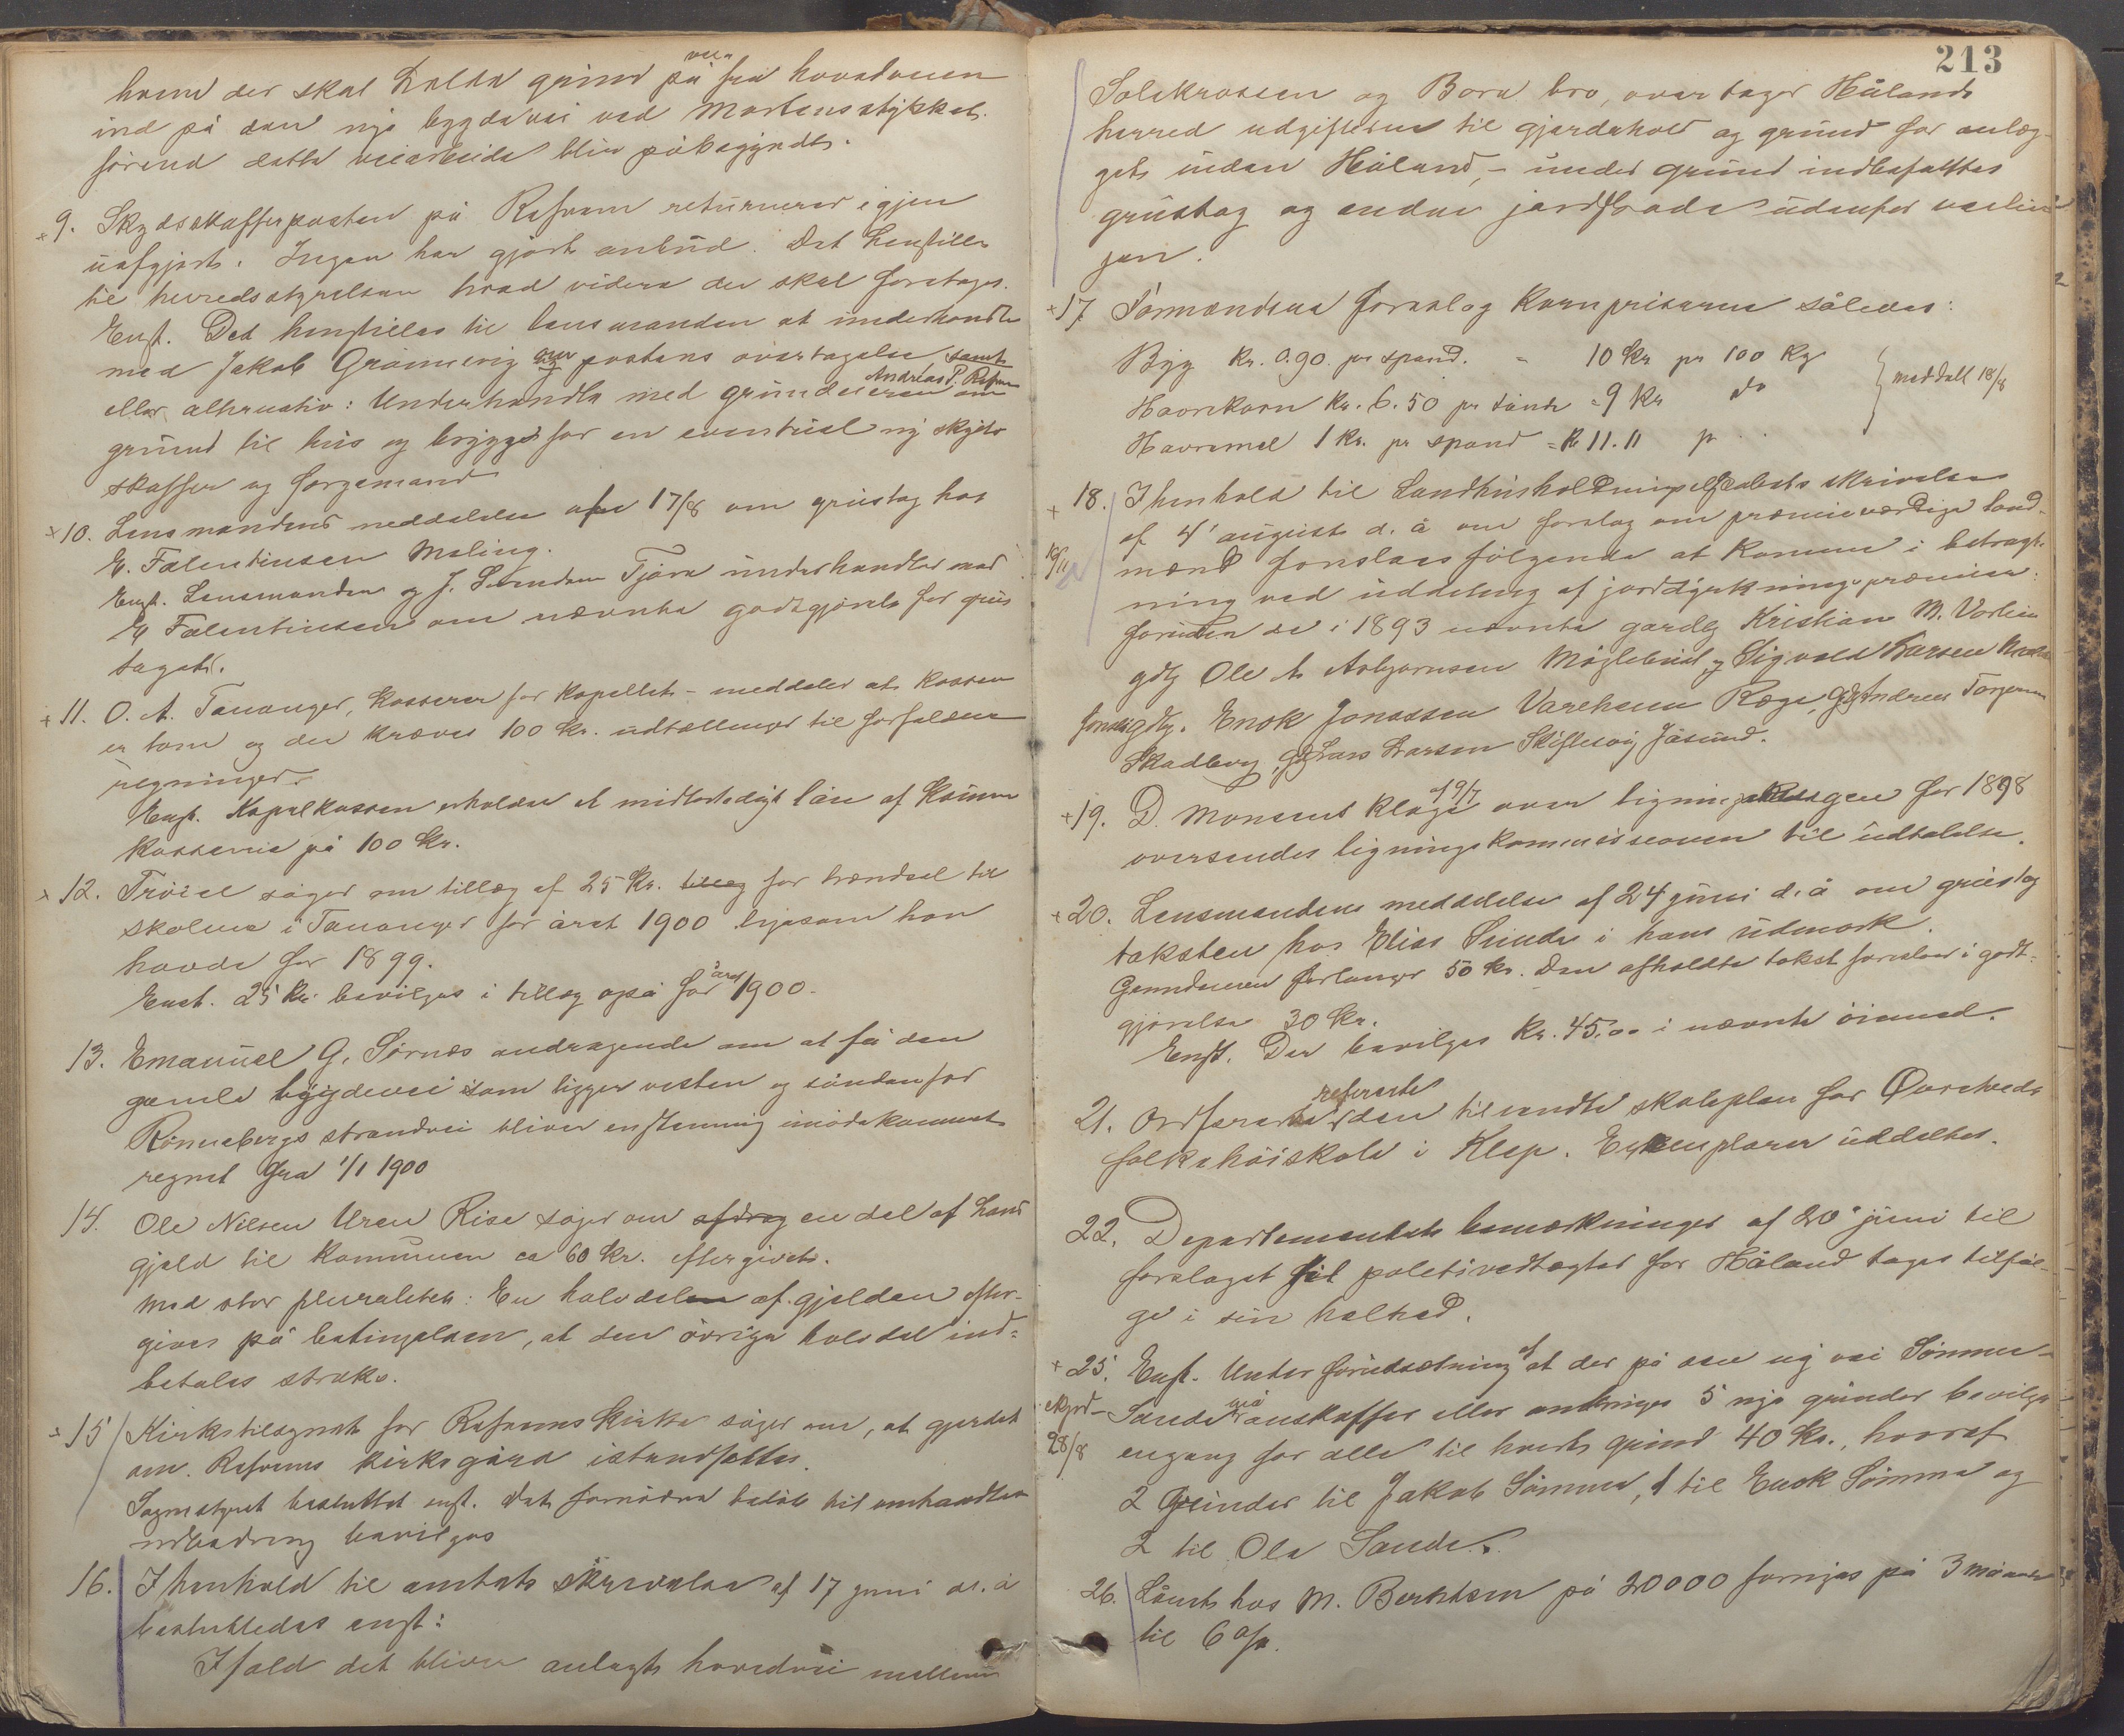 hvem der skal holde grind på veien fra hovedveien
ind på den nye bygdevei ved Mortensstykket
förend dette veiarbeide blir påbegyndt.
9. Skydsskafferposten på Refsnes returneres igjen
uafgjort. Ingen har gjort anbud. Det henstilles
til herredsstyrelsen hvad videre der skal foretages.
Enst. Det henstilles til lensmanden at underhandle
med Jakob Grannevig om postens overtagelse samt
eller alternativ: Underhandle med grundeieren Andreas P. om
grund til hus og brygge for en eventuel ny skyds
skaffer og færgemand
10. Lensmandens meddelelse af 17/8 om grustag hos
E. Falentinsen Meling.
Enst. Lensmanden og J. Tjora underhandler med
E Falentinsen om nævnte godtgjörelse for grus
taget.
11. O. A. Tananger, kasserer for kapellet - meddeler at kassen
er tom og der kræves 100 kr. udtællinger til forfaldne
regninger.
Enst. Kapelkassen erholder et midlertidigt lån af Komune
kassen på 100 kr.
12. søger om tillæg af 25 kr. tillæg for brændsel til
skolen i Tananger for året 1900 ligesom han
havde for 1899.
Enst. 25 kr. bevilges i tillæg også for året 1900.
13. Emanuel G. Sörnes andragende om at få den
gamle bygdevei som ligger vesten og söndenfor
Rönnebergs strandvei bliver enstemmig imödekommet
regnet fra 1/1 1900
14. Ole Nilsen Uren Rise söger om afdrag en del af Land
gjæld til Kommunen ca 60 kr. eftergivet.
Med stor pluralitet: En halvdelen af gjælden efter-
gives på betingelsen, at den övrige halvdel ind-
betales straks.
15 Kirketilsynet for Refsnes kirke söger om, at gjerdet
om Refsnes kirkegård istandsættes.
Sognestyret besluttet enst. det fornödne belöb til omhandlede
udbedring bevilges
16. I henhold til amtets skrivelse af 17 juni d. å
besluttedes enst:
Ifald det bliver anlagt hovedvei mellem
213
Solekrossen og Bore bro, overtager Hålands
herred udgifterne til gjerdehold og grund for anlæg-
get inden Håland, - under grund indbefattes
grustag og anden jordskade udenfor veilin-
jen.
17. Formændene foreslog kornpriserne således:
Byg Kr. 0.90. pr spand. - 10 kr pr 100 kg
Havrekorn Kr. 6.50 pr tönde = 9 kr do
Havremel 1 kr. pr spand = kr 11.11 pr
meddelt 18/8
18. I henhold til Landhusholdningselskabets skrivelse
af 4' august d. å om forslag om præmieværdige land-
mænd foreslaes følgende at komme i betragt-
ning ved uddeling af jorddyrkningspræmier:
foruden de i 1893 nævnte gardbr Kristian M. Vorhein
gdbr Ole A Asbjørnsen Myklebust og Sigvald Larsen
gdbr. Enok Jonassen Varehaun Ræge, gdbr Andreas Torgersen
Skadberg, gdbr Lars Larsen Skiftesvig Jåsund.
19. D. Monsens klage af 19/7 over ligningen for 1898
oversendes ligningskommissionen til udtalelse.
20. Lensmandens meddelelse af 24 juni d. å om grustag
taksten hos Elias Sunde i hans udmark.
Grundeieren forlanger 50 kr. den afholdte takst foreslaar i godt-
gjörelse 30 kr.
Enst. Der bevilges kr. 45.00 i nævnte öiemed.
21. Ordføreren refererte den tilsendte skoleplan for Øvrehveds
folkehöiskole i Klep. Exemplarer uddeltes.
22. Departementets bemærkninger af 20' juni til
forslaget til politivedtægter for Håland tages tilføl-
ge i sin helhed.
25. Enst. Under forudsætning af at der på den ny vei Sömme-
Sande anskaffes eller anbringes 5 nye grinder bevilges
engang for alle til hvert grind 40 kr., hvoraf
2 grinder til Jakob Sömme, 1 til Enok Sömme og
2 til Ola Sande.
28/8
26. Lånet hos M. Berntsen på 20000 fornyes på 3 måneder
til 6 %.